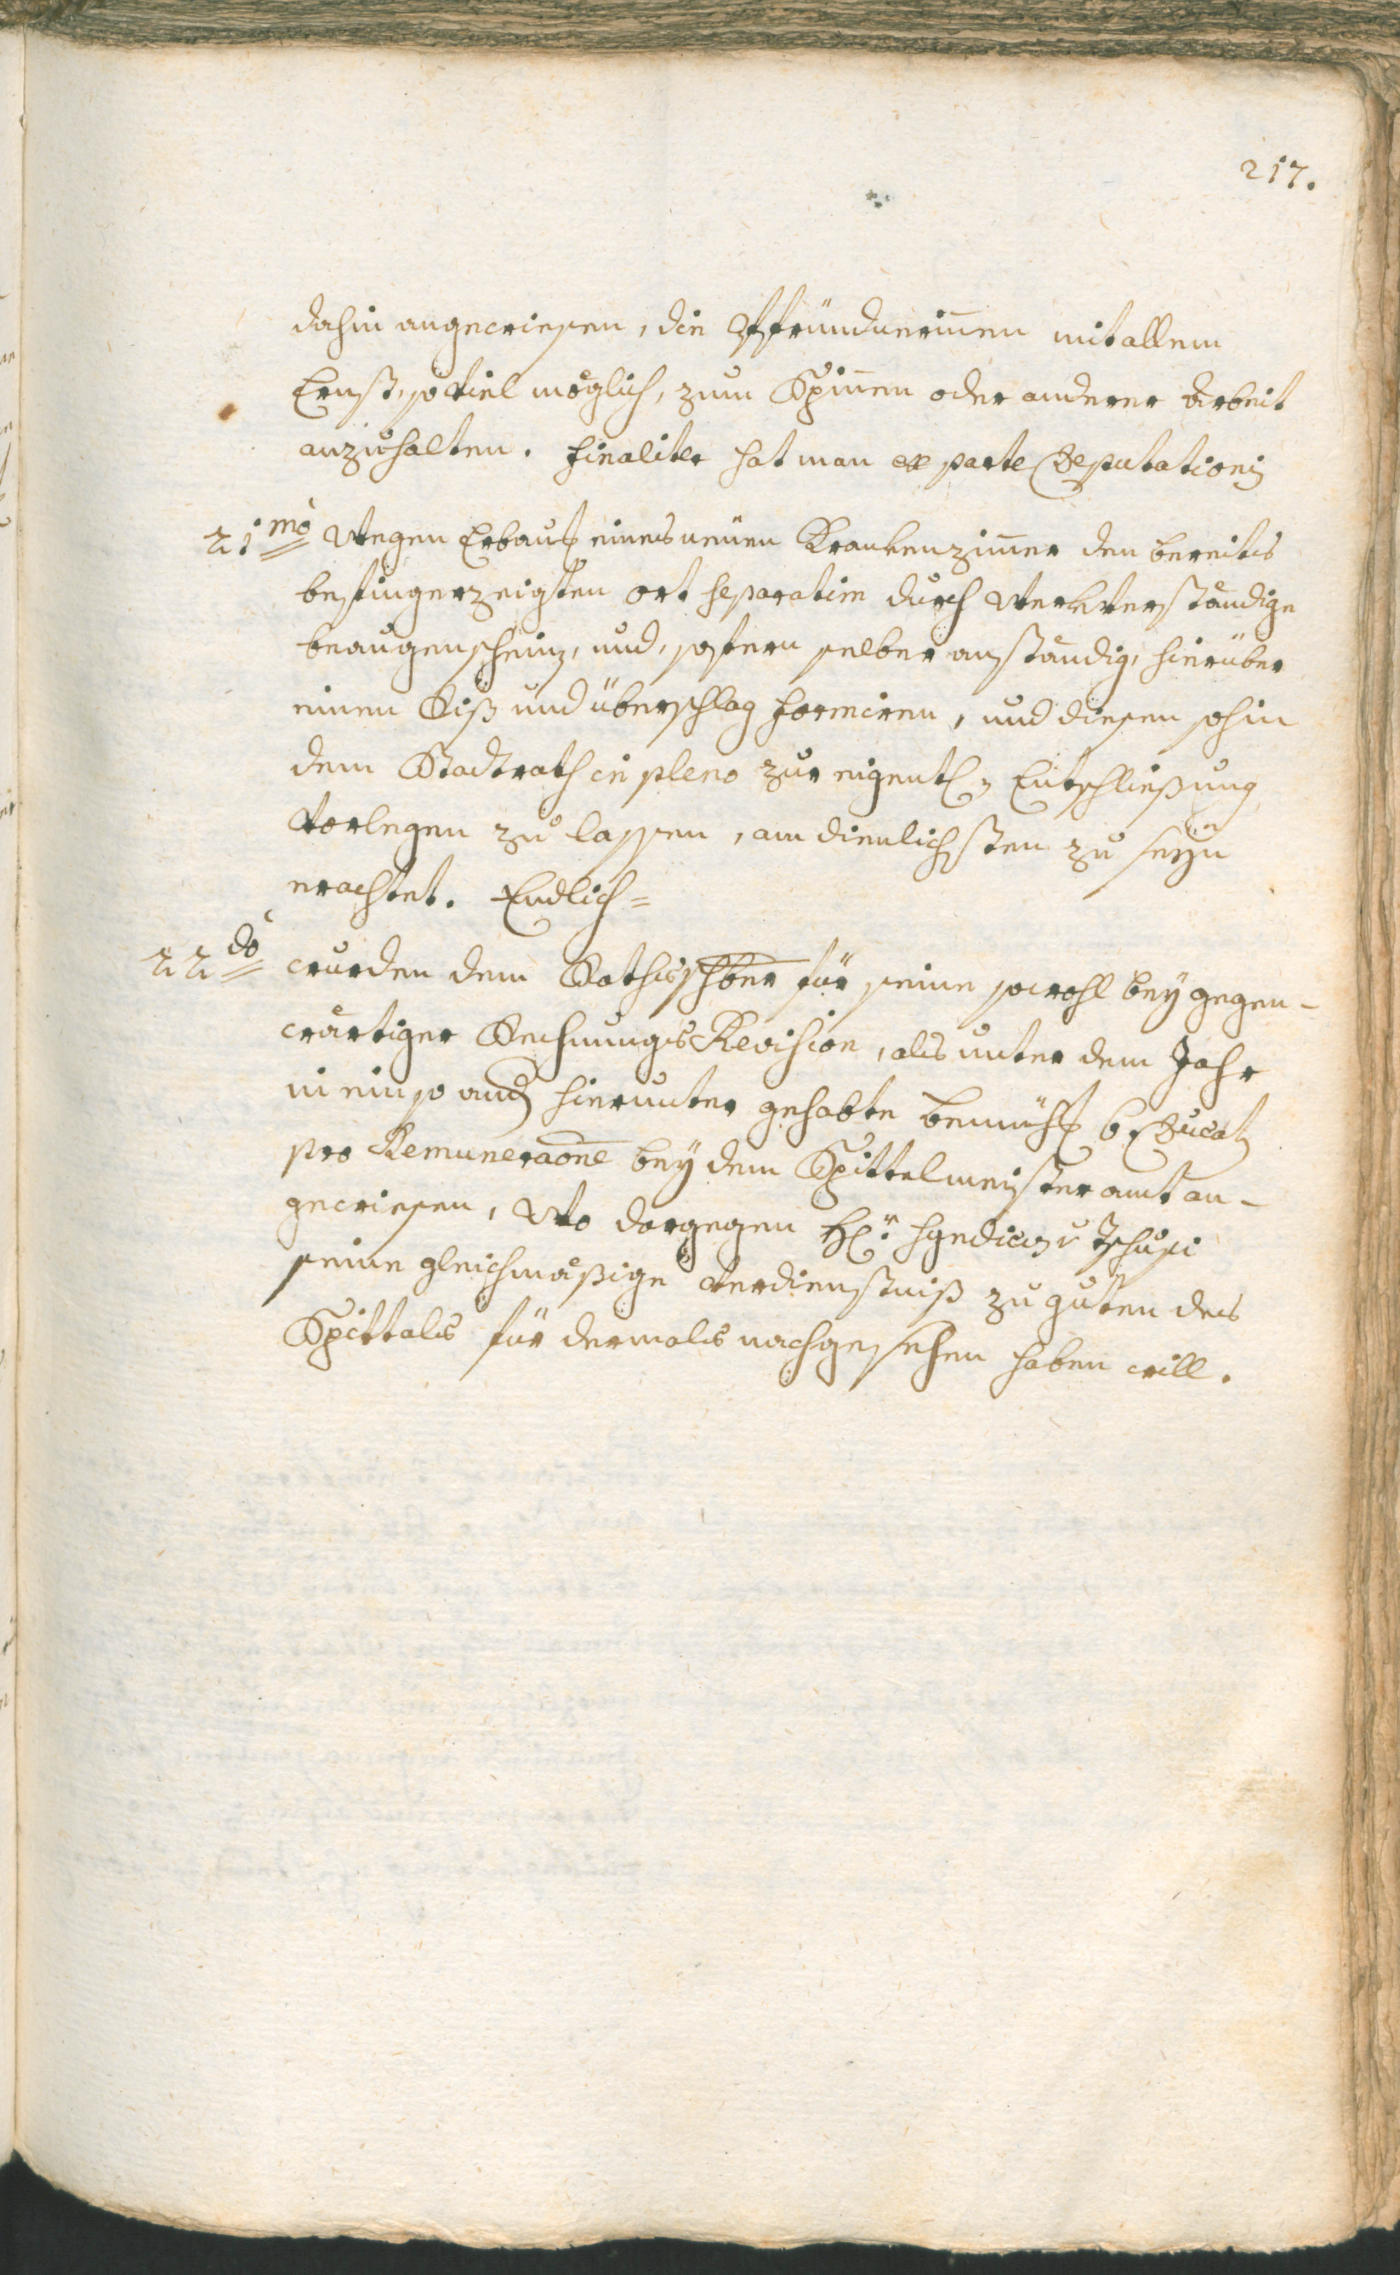 217.
dahin angewiesen, die Pfründnerinen mit allem
Ernst, so viel möglich, zum Spinnen oder anderer Arbeit
anzuhalten. Finaliter hat man ex parte Deputationis
21mo Wegen Erbauß eines neuen Krankenzimer den bereits
befingerzeigten ort separatim durch Werkverständige
beaugenscheinz, und, sofern selber anständig, hierüber
einen Riß und überschlag formiren, und diesen sohin
dem Stadtrath in pleno zur eigentl. Entschließung
Vorlegen zu lassen, am dienlichsten zu seÿn
erachtet. Endlich=
22do wurden dem Rathsschbr für seine sowohl beÿ gegen-
wärtiger Rechnungs Revision, als unter dem Jahr
in ein so and hierunter gehabte bemüh 6 Ducat
pro Remuneraone beÿ dem Spittelmeisteramt an-
gewiesen, Wo dargegen H: Syndicus Tschusi
seine gleichmäßige Verdienstniß zu guten des
Spittals für dermals nachgesehen haben will.